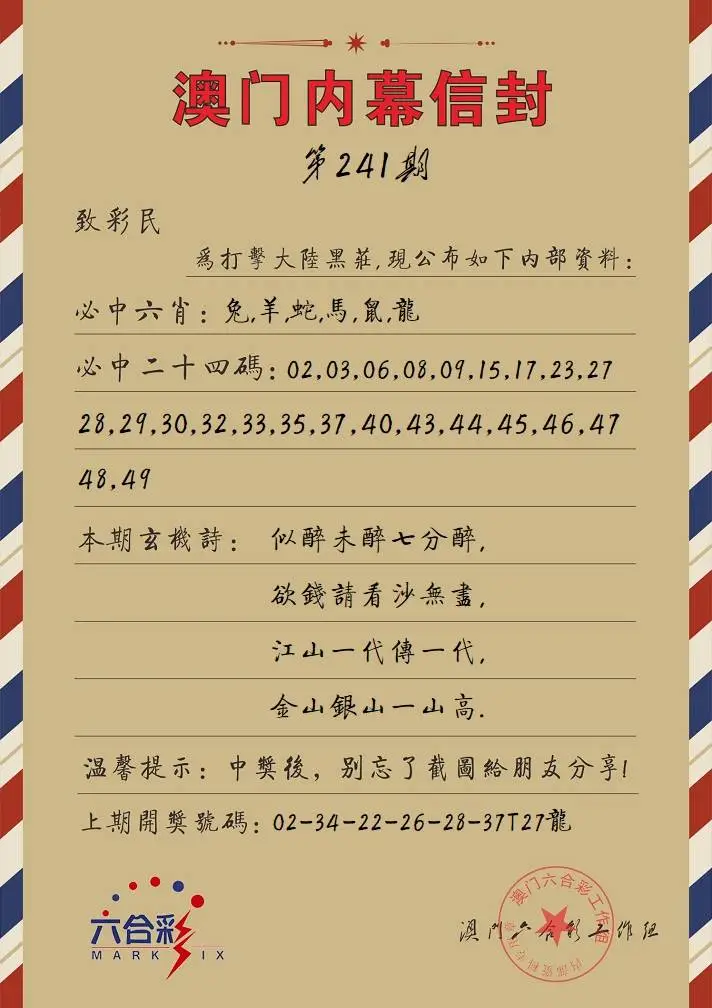 澳门内幕信封
第241期
致彩民
為打擊大陸黑莊,現公布如下内部資料:
必中六肖:兔,羊,蛇,馬,鼠,龍
必中二十四碼:02,03,06,08,09,15,17,23,27
28,29,30,32,33,35,37,40,43,44,45,46,47
48,49
本期玄機詩: 似醉未醉七分醉,
欲錢請看沙無盡,
江山一代傳一代,
金山銀山一山高.
温馨提示:中獎後,别忘了截圖給朋友分享!
上期開獎號碼:02-34-22-26-28-37T27龍
六合彩
MARK SIX
澳门六合彩工作组
内部资料专用章
澳门六合彩工作组